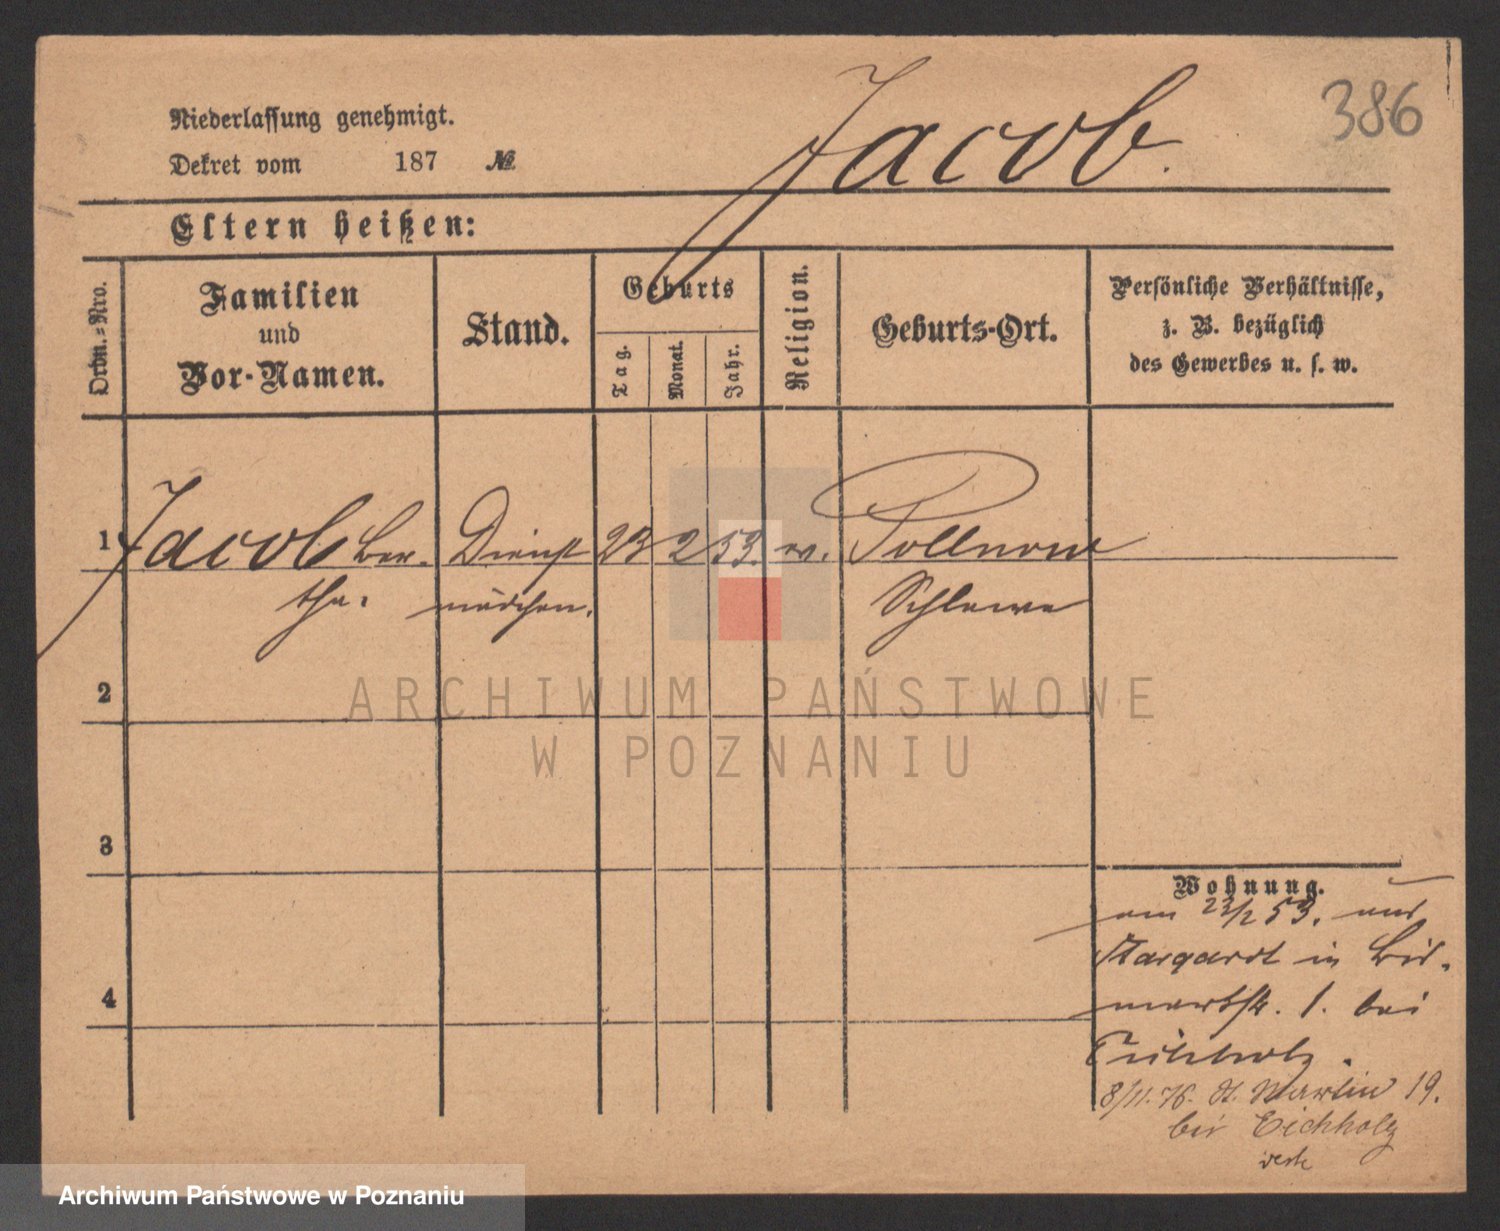 386
Jacob.
Niederlassung genehmigt.
Dekret vom 187 №
Eltern heißen:
Ordn.=Nro.
Familien
und
Vor-Namen.
Stand.
Geburts
Tag.
Monat.
Jahr.
Religion.
Geburts-Ort.
Persönliche Verhältnisse,
z. B. bezüglich
des Gewerbes u. s. w.
1 Jacob Ber- Dienst 23 2 53. ev. Pollnow
tha. mädchen. Schlawe
2
3
4
Wohnung.
am 23/2 53. aus
Stargardt in Bis-
markstr. 1. bei
Eichholz.
8/11. 76. St. Martin 19.
bei Eichholz
ARCHIWUM PAŃSTWOWE
W POZNANIU
Archiwum Państwowe w Poznaniu